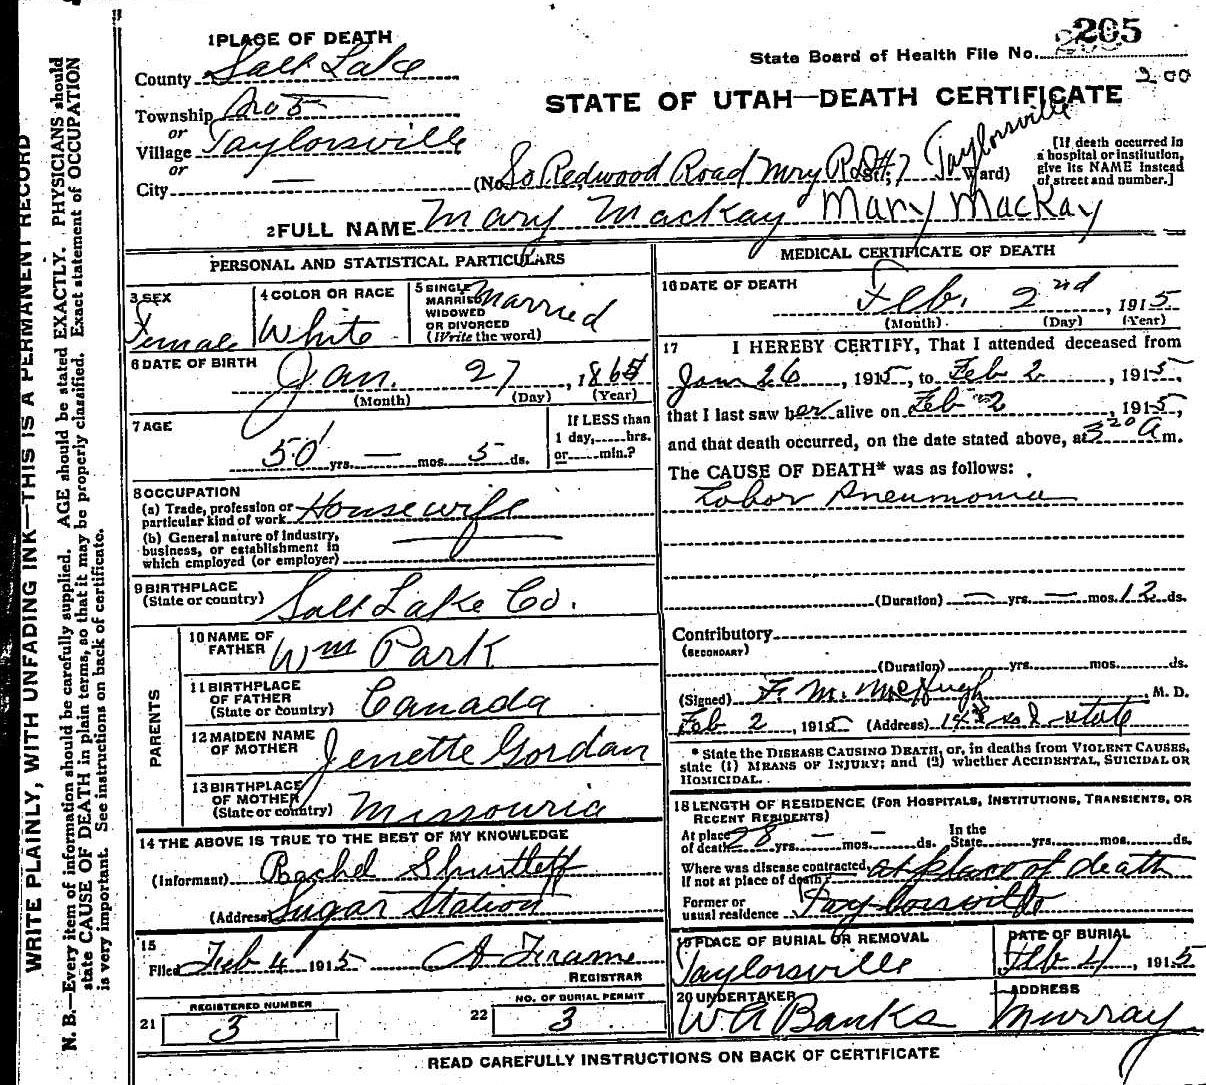 205
State Board of Health File No.
200
STATE OF UTAH—DEATH CERTIFICATE
1 PLACE OF DEATH
County Salt Lake
Township No 5
or
Village Taylorsville
or
City —
(No. So Redwood Road Mry R.D. St; 7 Taylorsville Ward)
[If death occurred in
a hospital or institution,
give its NAME instead
of street and number.]
2 FULL NAME Mary Mackay Mary MacKay
PERSONAL AND STATISTICAL PARTICULARS
3 SEX
Female
4 COLOR OR RACE
White
5 SINGLE
MARRIED
WIDOWED
OR DIVORCED
(Write the word)
Married
6 DATE OF BIRTH
Jan. 27, 1865
(Month) (Day) (Year)
7 AGE
50 yrs. — mos. 5 ds.
If LESS than
1 day,......hrs.
or......min.?
8 OCCUPATION
(a) Trade, profession or
particular kind of work Housewife
(b) General nature of Industry,
business, or establishment in
which employed (or employer)
9 BIRTHPLACE
(State or country) Salt Lake Co.
PARENTS
10 NAME OF
FATHER Wm Park
11 BIRTHPLACE
OF FATHER
(State or country) Canada
12 MAIDEN NAME
OF MOTHER Jenette Gordan
13 BIRTHPLACE
OF MOTHER
(State or country) Missouria
14 THE ABOVE IS TRUE TO THE BEST OF MY KNOWLEDGE
(Informant) Rachel Shurtleff
(Address) Sugar Station
15
Filed Feb 4 1915 A Frame
REGISTRAR
REGISTERED NUMBER
21 3
NO. OF BURIAL PERMIT
22 3
MEDICAL CERTIFICATE OF DEATH
16 DATE OF DEATH
Feb. 2nd, 1915
(Month) (Day) (Year)
17 I HEREBY CERTIFY, That I attended deceased from
Jan 26, 1915, to Feb 2, 1915,
that I last saw her alive on Feb 2, 1915,
and that death occurred, on the date stated above, at 3 20 A m.
The CAUSE OF DEATH* was as follows:
Lobar Pneumonia
(Duration) — yrs. — mos. 12 ds.
Contributory
(SECONDARY)
(Duration) yrs. mos. ds.
(Signed) F. M. McHugh, M. D.
Feb 2, 1915 (Address) state
* State the DISEASE CAUSING DEATH, or, in deaths from VIOLENT CAUSES,
state (1) MEANS OF INJURY; and (2) whether ACCIDENTAL, SUICIDAL OR
HOMICIDAL.
18 LENGTH OF RESIDENCE (FOR HOSPITALS, INSTITUTIONS, TRANSIENTS, OR
RECENT RESIDENTS)
At place
of death 28 yrs. — mos. — ds.
In the
State yrs. mos. ds.
Where was disease contracted,
if not at place of death? at place of death
Former or
usual residence Taylorsville
19 PLACE OF BURIAL OR REMOVAL
Taylorsville
DATE OF BURIAL
Feb 4, 1915
20 UNDERTAKER
W A Banks
ADDRESS
Murray
READ CAREFULLY INSTRUCTIONS ON BACK OF CERTIFICATE
WRITE PLAINLY, WITH UNFADING INK—THIS IS A PERMANENT RECORD
N. B.—Every item of information should be carefully supplied. AGE should be stated EXACTLY. PHYSICIANS should
state CAUSE OF DEATH in plain terms, so that it may be properly classified. Exact statement of OCCUPATION
is very important. See instructions on back of certificate.